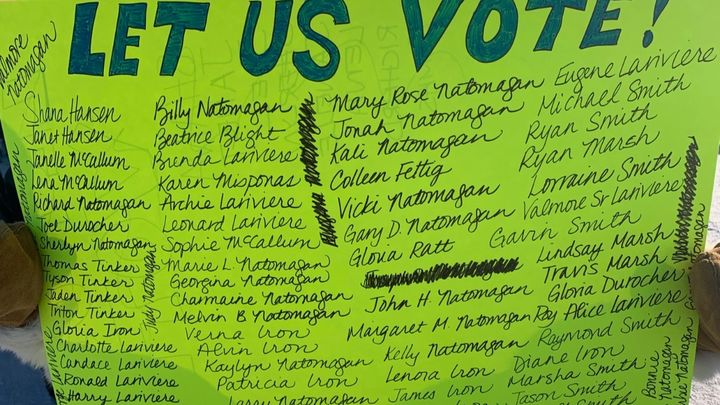 LET US VOTE!
Valmore Natomagan
Shana Hansen
Janet Hansen
Janelle McCallum
Lena McCallum
Richard Natomagan
Joel Durocher
Sherlyn Natomagan
Thomas Tinker
Tyson Tinker
Jaden Tinker
Triton Tinker
Gloria Iron
Charlotte Lariviere
Candace Lariviere
Ronald Lariviere
Harry Lariviere
Judy Natomagan
Billy Natomagan
Beatrice Blight
Brenda Lariviere
Karen Misponas
Archie Lariviere
Leonard Lariviere
Sophie McCallum
Marie L. Natomagan
Georgina Natomagan
Charmaine Natomagan
Melvin B Natomagan
Verna Iron
Alvin Iron
Kaylyn Natomagan
Patricia Iron
Larry Natomagan
Mary Rose Natomagan
Jonah Natomagan
Kali Natomagan
Colleen Fettig
Vicki Natomagan
Gary D. Natomagan
Gloria Ratt
John H. Natomagan
Margaret M. Natomagan
Kelly Natomagan
Lenora Iron
James Iron
Eugene Lariviere
Michael Smith
Ryan Smith
Ryan Marsh
Lorraine Smith
Valmore Sr Lariviere
Gavin Smith
Lindsay Marsh
Travis Marsh
Gloria Durocher
Roy Alice Lariviere
Raymond Smith
Diane Iron
Marsha Smith
Jason Smith
Bonnie Natomagan
Natomagan